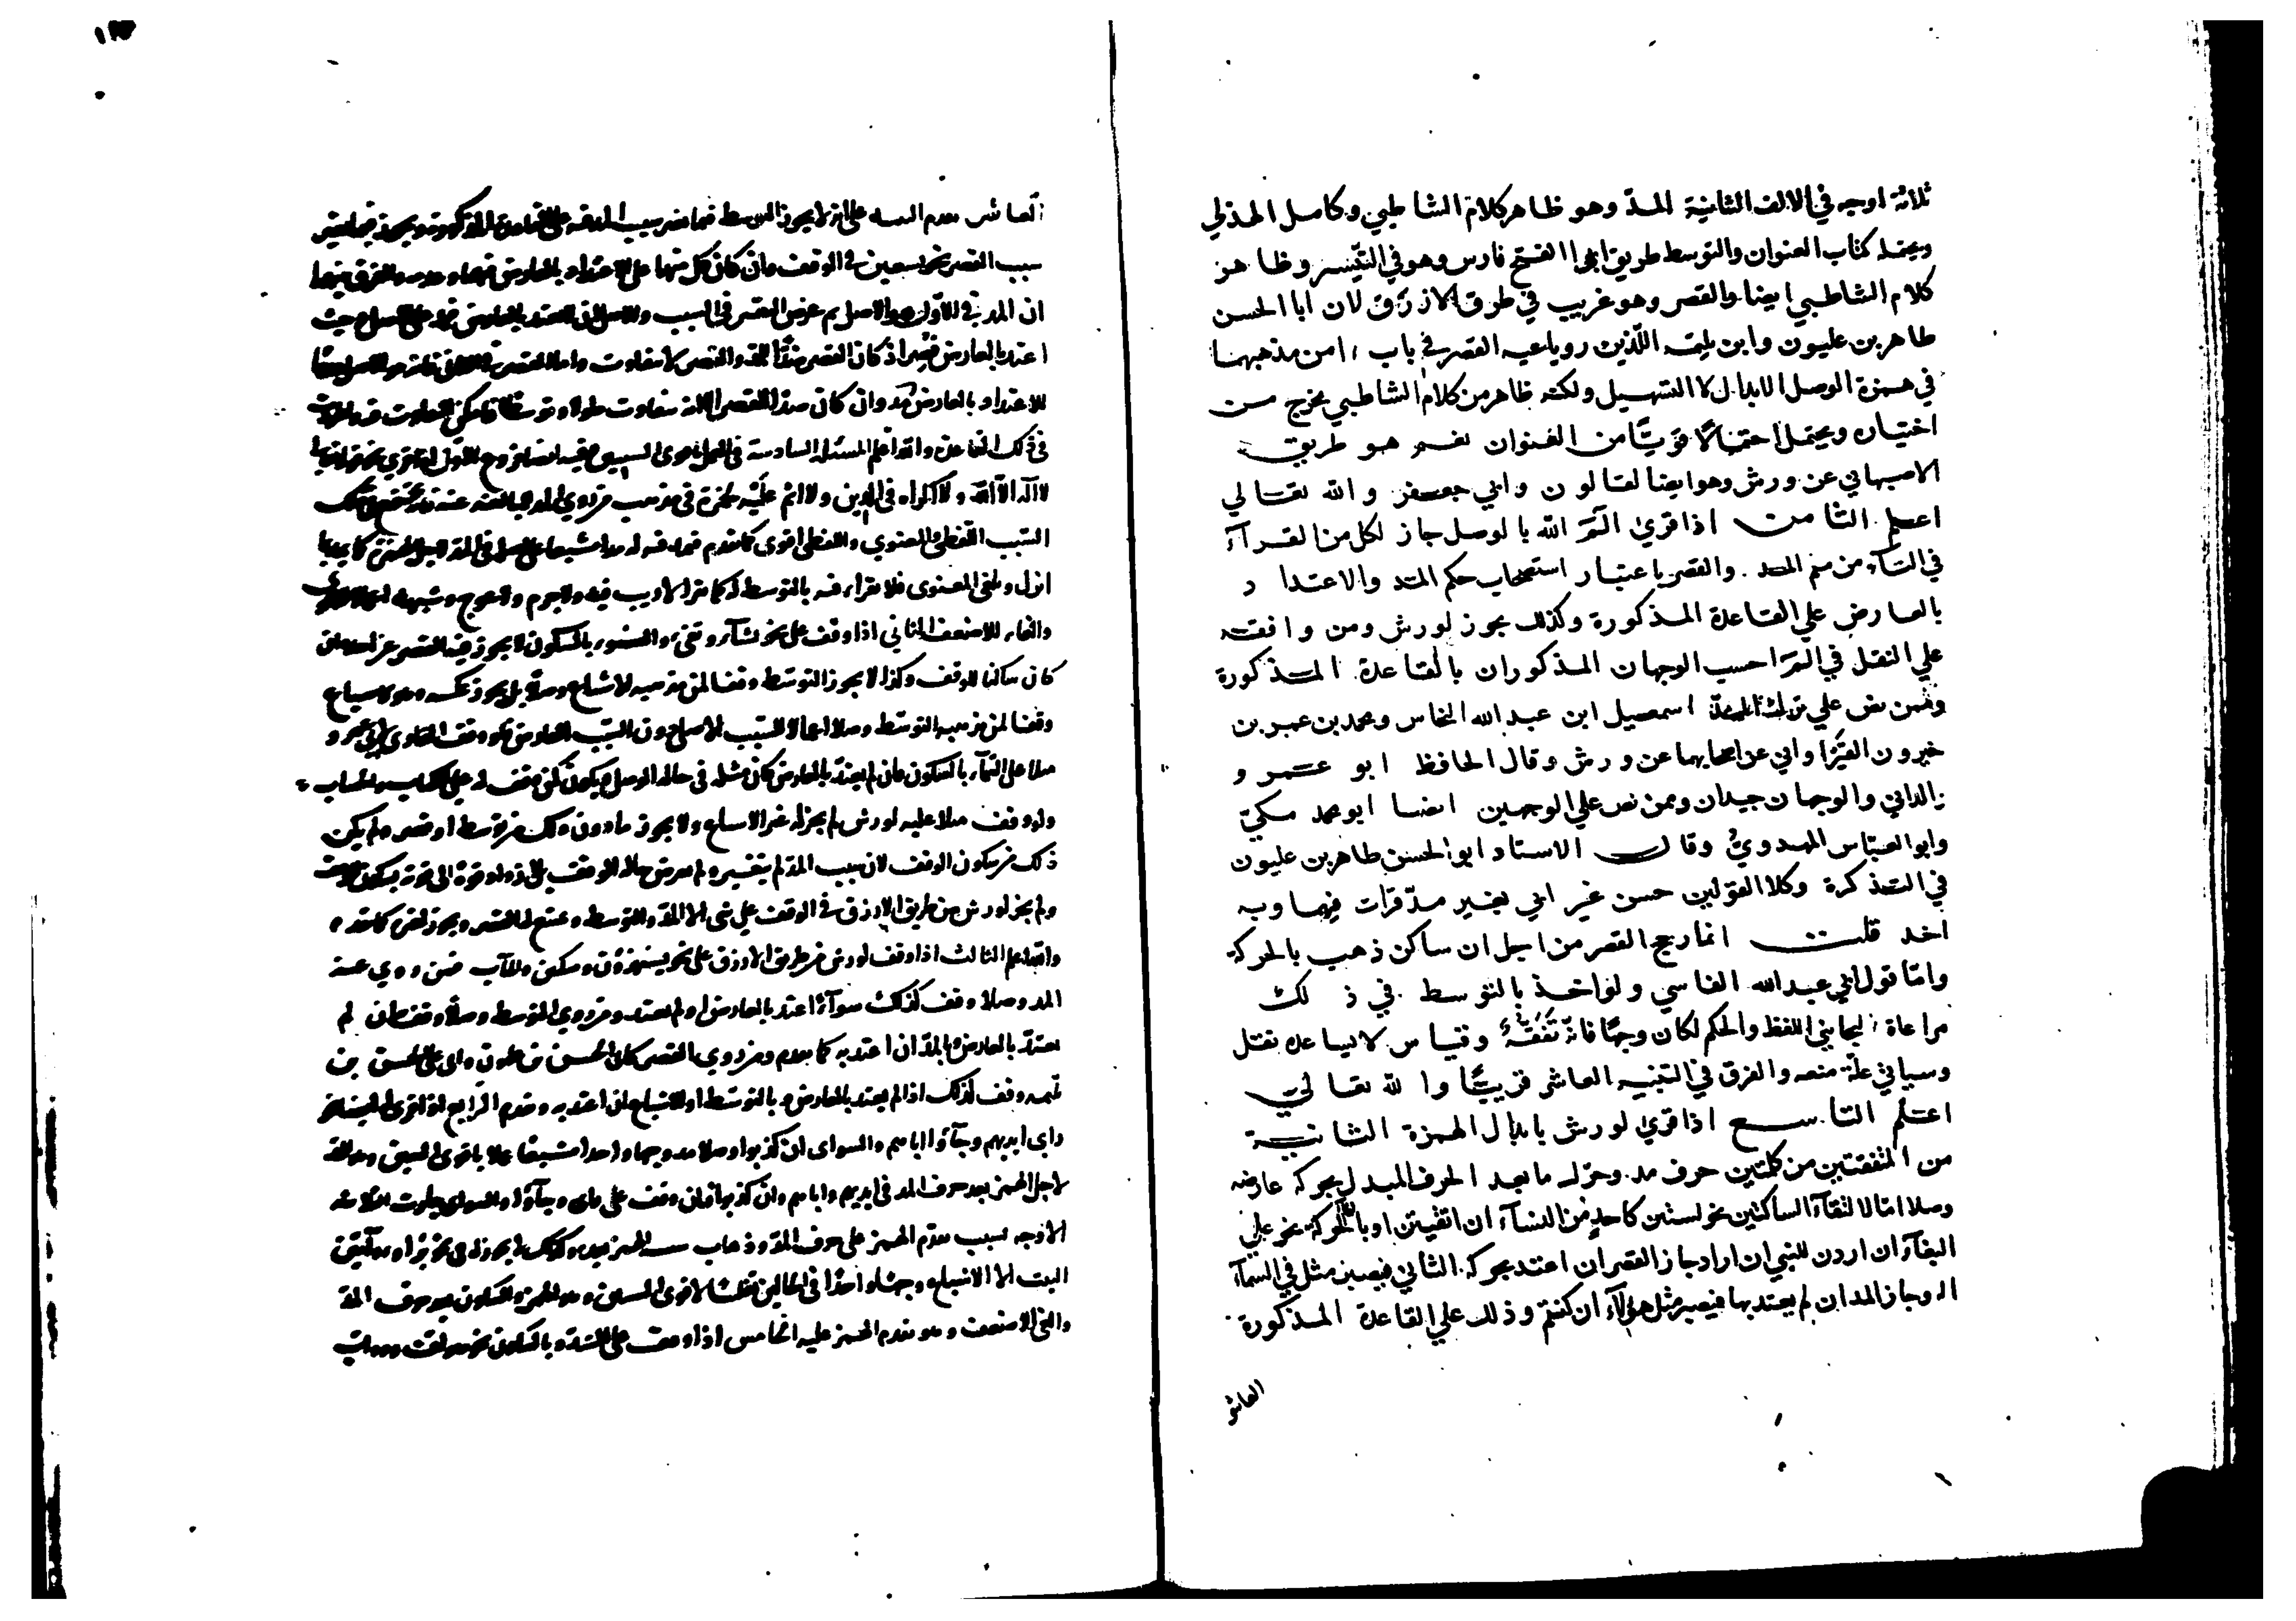 ثلاثة اوجه في الالف الثانية المدّ وهو ظاهر كلام الشاطبي وكامل الهذلي
ويحتمله كتاب العنوان والتوسط طريق ابي الفتح فارس وهو في التيسير وظاهر
كلام الشاطبي ايضا والقصر وهو غريب في طرق الازرق لان ابا الحسن
طاهر بن غلبون وابن بليمه اللذين رويا عنه القصر في باب امن مذهبهما
في همزة الوصل الابدال لا التسهيل ولكنه ظاهر من كلام الشاطبي يخرج من
اختياره ويحتمل احتمالا قويّا من العنوان نعم هو طريق
الاصبهاني عن ورش وهو ايضا لقالون وابي جعفر والله تعالي
اعلم الثامن اذا قري الٓمَ الله بالوصل جاز لكل من القرآء
في اليآء من ميم المد والقصر باعتبار استصحاب حكم المد والاعتداد
بالعارض علي القاعدة المذكورة وكذلك يجوز لورش ومن وافقه
علي النقل في الٓمَ احسب الوجهان المذكوران بالقاعدة المذكورة
وممن نص علي ترك المد اسمعيل ابن عبد الله النحاس ومحمد بن عمر بن
خيرون القيروانى عن اصحابهما عن ورش وقال الحافظ ابو عمرو
الداني والوجهان جيدان وممن نص علي الوجهين ايضا ابو محمد مكيّ
وابو العبّاس المهدويُّ وقال الاستاد ابو الحسن طاهر بن غلبون
في التذكرة وكلا القولين حسن غير اني بغير مدّ قرات فيهما وبه
اخذ قلت انما رجح القصر من اجل ان ساكن ذهب بالحركة
وامّا قول ابي عبد الله الفاسي ولو اخذ بالتوسط في ذلك
مراعاة لجانبي اللفظ والحكم لكان وجهًا فانه تفقه وقياس لا يساعده نقل
وسياتي علّة منعه والفرق في التنبيه العاشر قريبًا والله تعالي
اعلم التاسع اذا قري لورش بابدال الهمزة الثانية
من المتفقتين من كلمتين حرف مد وحرّك ما بعد الحرف المبدل بحركة عارضه
وصلا امّا لالتقاء الساكنين نحو لستن كاحدٍ من النسآء ان اتقيتن او بالقآء الحركة نحو علي
البغآء ان اردن للنبي ان اراد جاز القصر ان اعتد بحركة الثاني فيصير مثل في السمآء
اله وجاز المد ان لم يعتد بها فيصير مثل هؤلآء ان كنتم وذلك علي القاعدة المذكورة
العاشر
العاشر
سبب القصر نحو نستعين في الوقف وان كان كل منهما على الاعتداد بالعارض فيهما وعدمه والفرق بينهما
ان المد في الاول هو الاصل ثم عرض التغير في السبب والاصل ان لا يعتد بالعارض فمد على الاصل وحيث
في ذلك القاعدة والله اعلم المسئلة السادسة في العمل باقوى السببين وفيه ايضا فروع الاول
لا اله الا الله ولا اكراه في الدين ولا اثم عليه لحمزة في مذهب من روى المد
السبب اللفظي والمعنوي واللفظي اقوى كما تقدم
انزل ويلغي المعنوى فلا يقرا فيه بالتوسط له كما لا يقرا لا ريب فيه ولا جرم ولا عوج وشبهه اعمالا للاقوى
والغاء للاضعف الثاني اذا وقف على نحو نشآء وتفئ والسوء بالسكون لا يجوز فيه القصر عن احد وان
كان ساكنا للوقف وكذا لا يجوز التوسط وقفا لمن مذهبه الاشباع وصلا بل يجوز عكسه وهو الاشباع
وقفا لمن مذهبه التوسط وصلا اعمالا للسبب الاصلي دون السبب العارض فلو وقف القارى لابي عمرو
مثلا على السمآء بالسكون فان لم يعتد بالعارض كان مثله في حالة الوصل ويكون كمن وقف له على الكتاب والحساب
ولو وقف مثلا عليه لورش لم يجز له غير الاشباع ولا يجوز ما دون ذلك من توسط او قصر ولم يكن
ذلك من سكون الوقف لان سبب المد لم يتغير ولم يعرض حالة الوقف بل ازداد قوة الى قوته بسكون الوقف
ولم يجز لورش من طريق الازرق في الوقف على شي الا المد والتوسط ويمتنع له القصر ويجوز لغيره كما تقدم
والله اعلم الثالث اذا وقف لورش من طريق الازرق على نحو يستهزؤن ومتكئين والمآب فمن روي عنه
المد وصلا وقف كذلك سوآء اعتد بالعارض او لم يعتد ومن روي التوسط وصلا وقف به ان لم
يعتد بالعارض وبالمد ان اعتد به كما تقدم ومن روي القصر كابي الحسن بن غلبون وابى على الحسن بن
بليمه وقف كذلك اذا لم يعتد بالعارض وبالتوسط او الاشباع ان اعتد به وتقدم الرابع
راى ايديهم وجآؤا اباهم والسواى ان كذبوا وصلا مد وجها واحدا مشبعا عملا باقوى السببين وهو المد
لاجل الهمز بعد حرف المد في ايديهم واباهم وان كذبوا فان وقف على راى وجآؤا والسواى جازت الثلاثة
الاوجه بسبب تقدم الهمز على حرف المد وذهاب سببية الهمز بعده وكذلك لا يجوز له في نحو برآؤا وآمّين
البيت الا الاشباع وجها واحدا في الحالين تغليبا لاقوى السببين وهو الهمز والسكون بعد حرف المد
والغي الاضعف وهو تقدم الهمز عليه الخامس اذا وقف على المشدد بالسكون نحو صواف ودواب